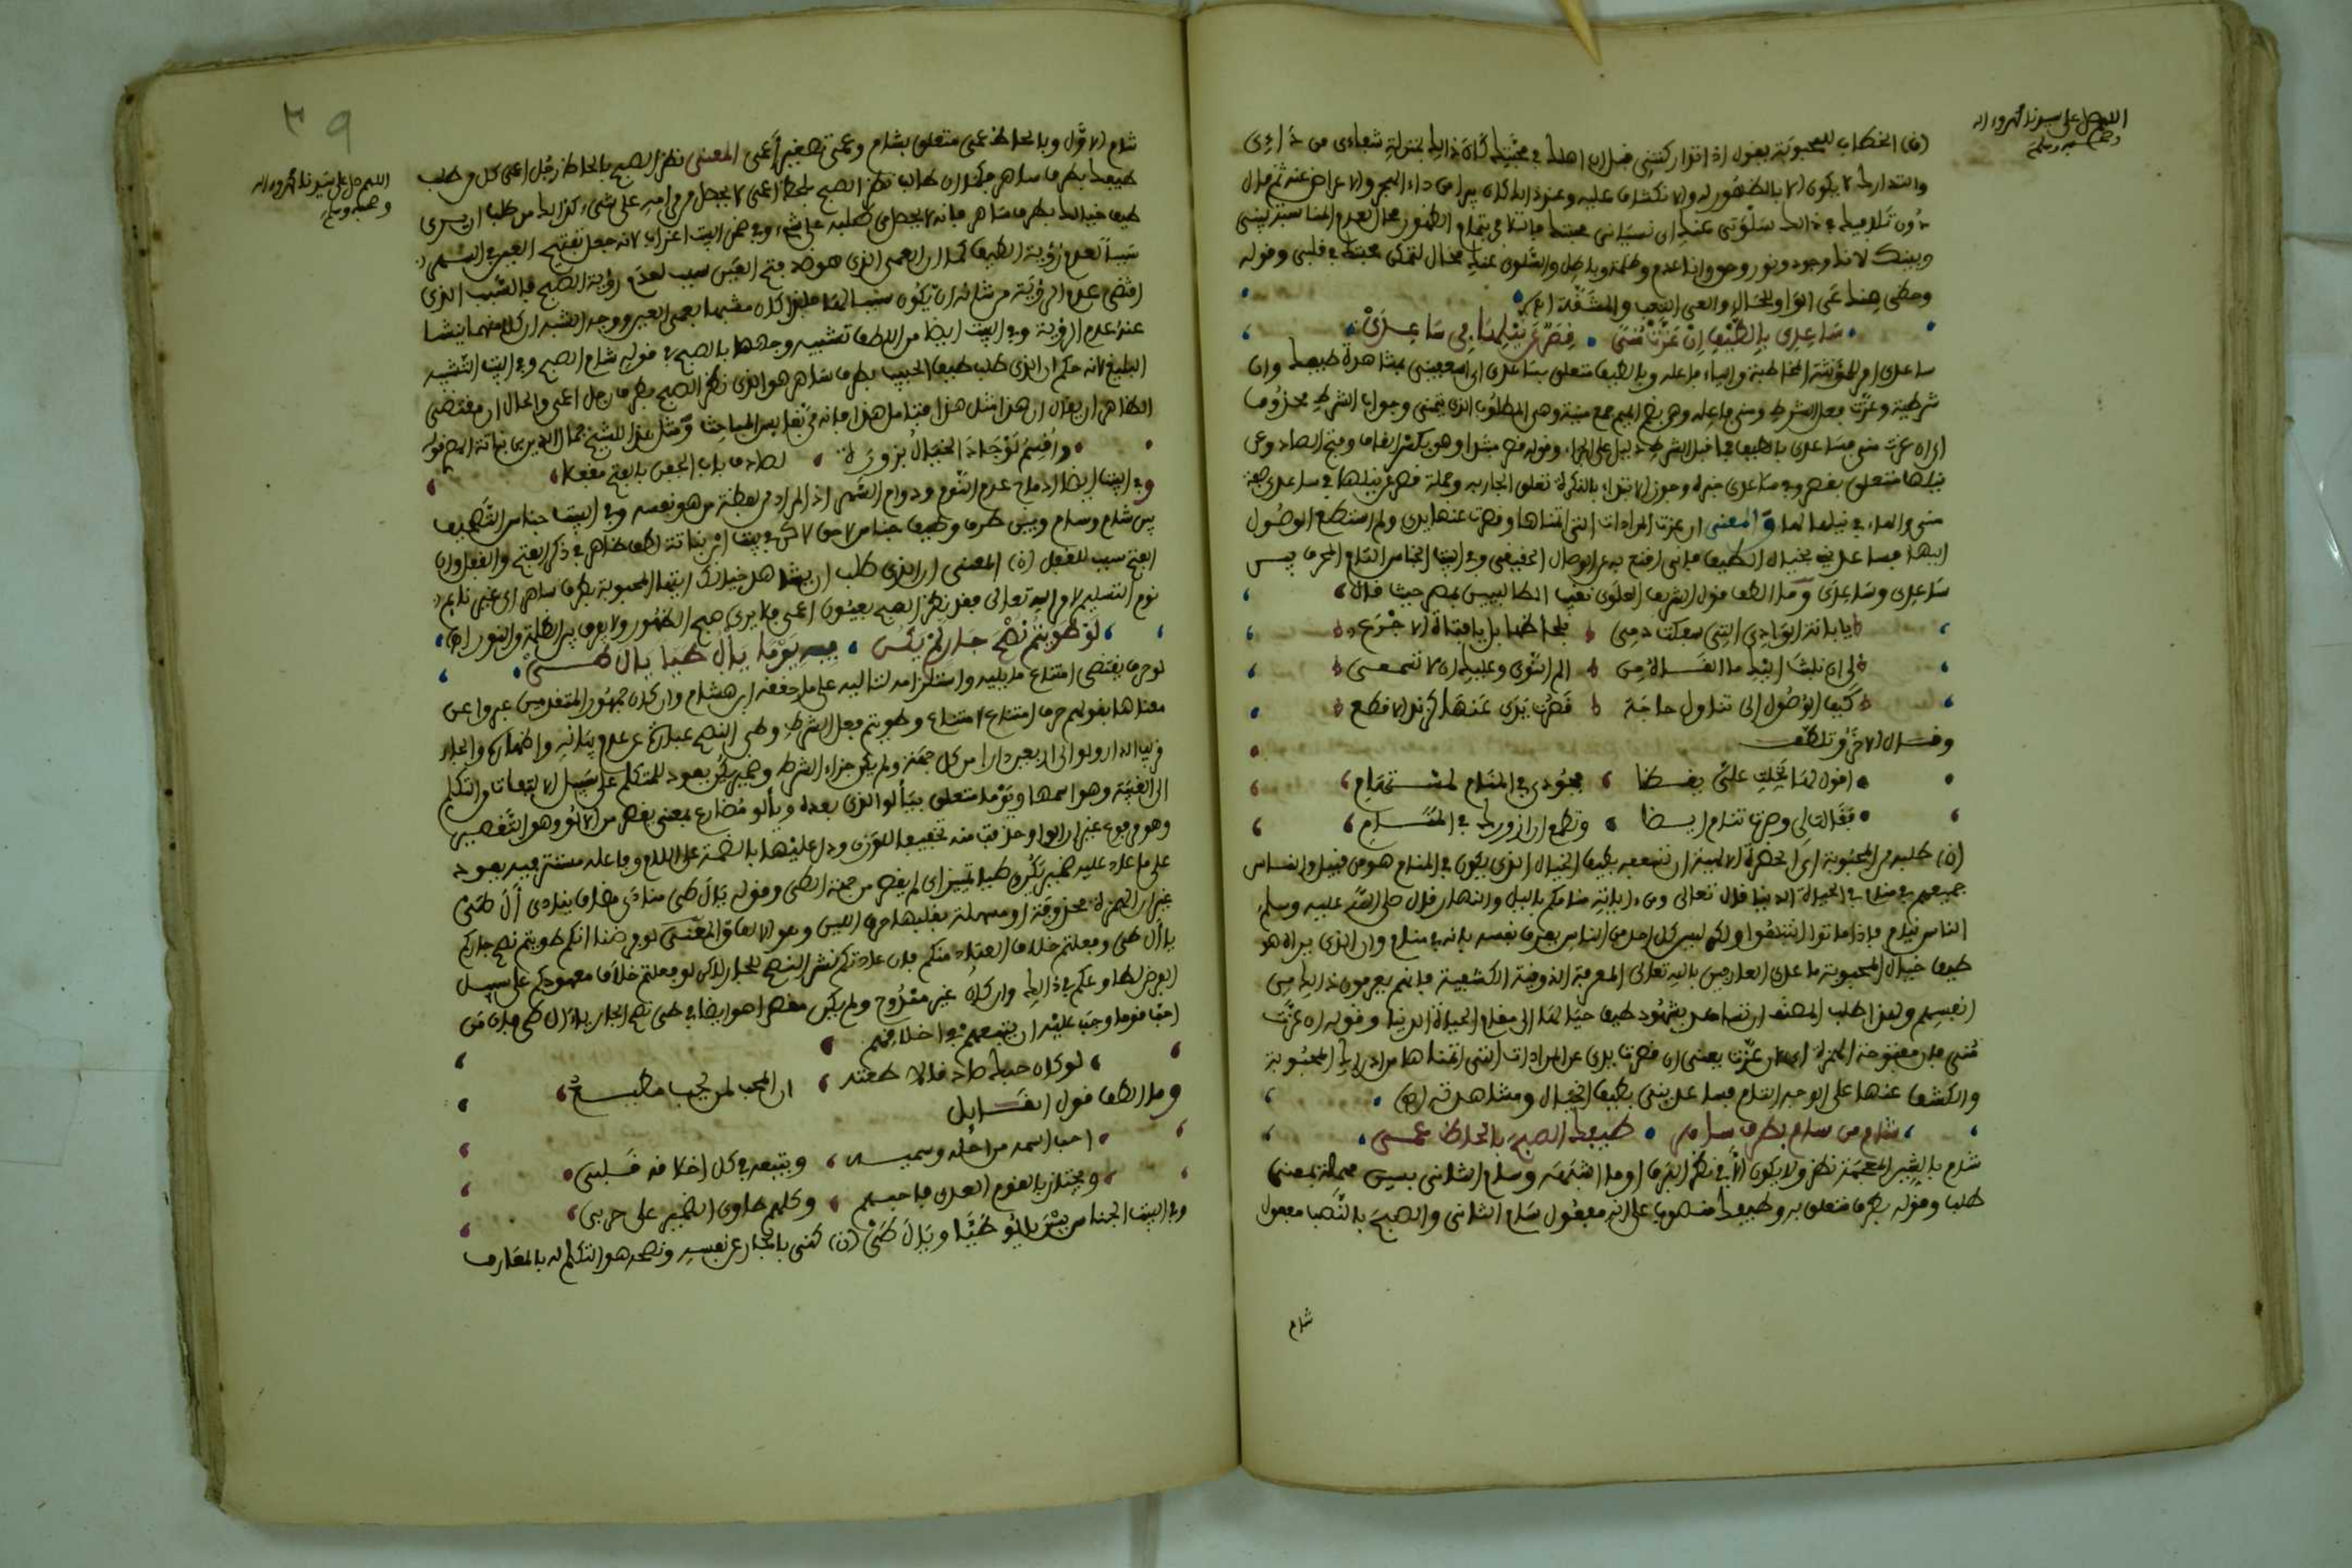 اللهم صل على سيدنا محمد وءاله
وصحبه وسلم
(ن) الخطاب للمحبوبة يقول اذا تواركتني قبل ان اهلك في محبتك كان ذالك بمنزلة شفاءي من داءي
والتدارك لا يكون الا بالظهور له والانكشاف عليه وعند ذالك كان يبرا من داء الهجر والاعراض عنه ثم قال
دون تلافيك في ذالك سلوتي عنك اي نسياني محبتك فانت في تمام الظهور محال لعدم المناسبة بيني
وبينك لانك وجود ونور وحق وانا عدم وظلمة وباطل والسلو عنك محال لتمكن محبتك في قلبي وقوله
وحظي منك عي الواو للحال والعي التعب والمشقة اه
ساعدي بالطيف ان عزت منى قصر عن نيلها في ساعدي
ساعدي امر للمؤنثة المخاطبة والياء فاعله وبالطيف متعلق بساعدي اي اسعفيني بمشاهدة طيفك وان
شرطية وعزت فعل الشرط ومنى فاعله وهو بضم الميم جمع منية وهي المطلوب الذي يتمنى وجواب الشرط محذوف
اي ان عزت منى فساعدي بالطيف فما قبل الشرط دليل على الجزاء وقوله قصر مبتدا وهو بكسر القاف وفتح الصاد وعن
نيلها متعلق بقصر وفي ساعدي خبره وجوز الابتداء بالنكرة تعلق الجار به وجملة قصر عن نيلها في ساعدي صفة
منى والهاء في نيلها لها والمعنى ان عزت المرادات التي اتمناها وقصرت عنها يدي ولم استطع الوصول
اليها فساعديني بخيال الطيف فاني اقنع به عن الوصال الحقيقي وفي البيت الجناس التام المحرف بين
ساعدي وساعدي وما الطف قول الشريف العلوي نقيب الطالبيين بمصر حيث قال
يا بانة الوادي التي سفكت دمي بلحاظها بل يا فتاة الاجرع
لي ان ابث اليك ما القاه من الم النوى وعليك ان لا تسمعي
كيف الوصول الى تناول حاجة قصرت يدي عنها كزند الاقطع
وقال الاخر وتلطف
اقول لها بخلت علي يقظا فجودي في المنام لمستهام
فقالت لي وصرت تنام ايضا وتطمع ان ازورك في المنام
(ن) طلبه من المحبوبة اي الحضرة الالهية ان تسعفه بطيف الخيال الذي يكون في المنام هو من قبيل والناس
جميعهم في منام في الحياة الدنيا قال تعالى ومن ءاياته منامكم بالليل والنهار وقال صلى الله عليه وسلم
الناس نيام فاذا ماتوا انتبهوا ولكن ليس كل احد من الناس يعرف نفسه بانه في منام وان الذي يراه هو
طيف خيال المحبوبة ما عدى العارفين بالله تعالى المعرفة الذوقية الكشفية فانهم يعرفون ذالك من
انفسهم ولهذا طلب المصنف ان تساعده بشهود طيف خيالها الى مقام الحياة الدنيا وقوله ان عزت
منى فان مفتوحة الهمزة اي لان عزت يعني ان قصرت يدي عن المرادات التي اتمناها من ادراك المحبوبة
والكشف عنها على الوجه التام فساعديني بطيف الخيال ومشاهدته (ه)
شام من سام بطرف ساهر طيفك الصبح بالحاظ عمي
شام بالشين المعجمة نظر ولا يكون الا في نظر البرق او ما اشبهه وسام الثاني بسين مهملة بمعنى
طلب وقوله بطرف متعلق به وطيفك منصوب على انه مفعول سام الثاني والصبح بالنصب مفعول
شام
٣٩
اللهم صل على سيدنا محمد وءاله
وصحبه وسلم
شام الاول وبالحاظ عمي متعلق بشام وعمي تصغير اعمى المعنى نظر الصبح بالحاظ رجل اعمى كل من طلب
طيفك بطرف ساهر فكما ان طالب نظر الصبح بلحظ اعمى لا يحصل من مرامه على شيء كذالك من طلب ان يرى
طيف خيالك بطرف ساهر فانه لا يحصل من طلبه على شيء وفي ضمن البيت اغراب لانه جعل تفتيح العين في السهر
سببا لعدم رؤية الطيف كما ان العمى الذي هو ضد فتح العين سبب لعدم رؤية الصبح فالسبب الذي
اقتضى عدم الرؤية من شانه ان يكون سببا لها فلذا كان مشبها بعمى العين ووجه الشبه ان كلا منهما ينشا
عنه عدم الرؤية وفي البيت ايضا من اللطف تشبيه وجهها بالصبح في قوله شام الصبح وفي البيت التشبيه
البليغ لانه حكم ان الذي طلب طيف الحبيب بطرف ساهر هو الذي نظر الصبح بطرف رجل اعمى والحال ان مقتضى
الظاهر ان يقال ان هذا مثل هذا فتامل هذا فانه من نفايس المباحث ومثل هذا للشيخ جمال الدين بن نباتة المصري قوله
واقسم لو جاد الخيال بزورة لصادف باب الجفن بالفتح مقفلا
وفي البيت ايضا ادماج عدم النوم ودوام السهر اذ المراد من لفظة من هو نفسه وفي البيت جناس التصحيف
بين شام وسام وبين طرف وطيف جناس لاحق لاكن في بيت ابن نباتة لطف ظاهر في ذكر الفتح والقفل وان
الفتح سبب للقفل (ن) المعنى ان الذي طلب ان يشاهد خيالك ايتها المحبوبة بطرف ساهر اي غير نايم
نوم التسليم لامر الله تعالى فقد نظر الصبح بعيون اعمى فلا يرى صبح الظهور ولا يعرف بين الظلمة والنور (ه)
لو طويتم نصح جار لم يكن فيه يوما يال طيا يال طي
لو حرف يقتضي امتناع ما يليه واستلزامه لتاليه على ما حققه ابن هشام وان كان جمهور المتقدمين عبروا عن
معناها بقولهم حرف امتناع لامتناع وطويتم فعل الشرط وطي النصح عبارة عن عدم بيانه واظهاره والجار
قريب الدار ولو الى اربعين دارا من كل جهة ولم يكن جزاء الشرط وضمير يكن يعود للمتكلم على سبيل الالتفات من التكلم
الى الغيبة وهو اسمها ويوما متعلق بيألو الذي بعده ويألو مضارع بمعنى يقصر من الالو وهو التقصير
وهو مرفوع غير ان الواو حذفت منه تخفيفا للوزن ودل عليها بالضمة على اللام وفاعله مستتر فيه يعود
على ما عاد عليه ضمير يكن طيا تمييز اي لم يقصر من جهة الطي وقوله يال طي منادى مضاف ينادى أل طي
غير ان الهمزة محذوفة او مسهلة بقلبها حرف اللين وهو الالف والمعنى لو فرضنا انكم طويتم نصح جاركم
يا ال طي وفعلتم خلاف العادة منكم فان عادتكم نشر النصح للجار لاكن لو فعلتم خلاف معهودكم على سبيل
الفرض لطاوعكم في ذالك وان كان غير ممدوح ولم يكن مقصرا هو ايضا في طي نصح الجار يا ال طي فان من
احب قوما وجب عليه ان يتبعهم في اخلاقهم
لو كان حبك صادقا لاطعته ان المحب لمن يحب مطيع
وما الطف قول القايل
احب اسمه من اجله وسميه ويتبعه في كل اخلاقه قلبي
ويجتاز بالقوم العدى فاحبهم وكلهم طاوي الضمير على حربي
وفي البيت الجناس بين يالو طيا ويال طي (ن) كنى بالجار عن نفسه ونصحه هو التكلم له بالمعارف